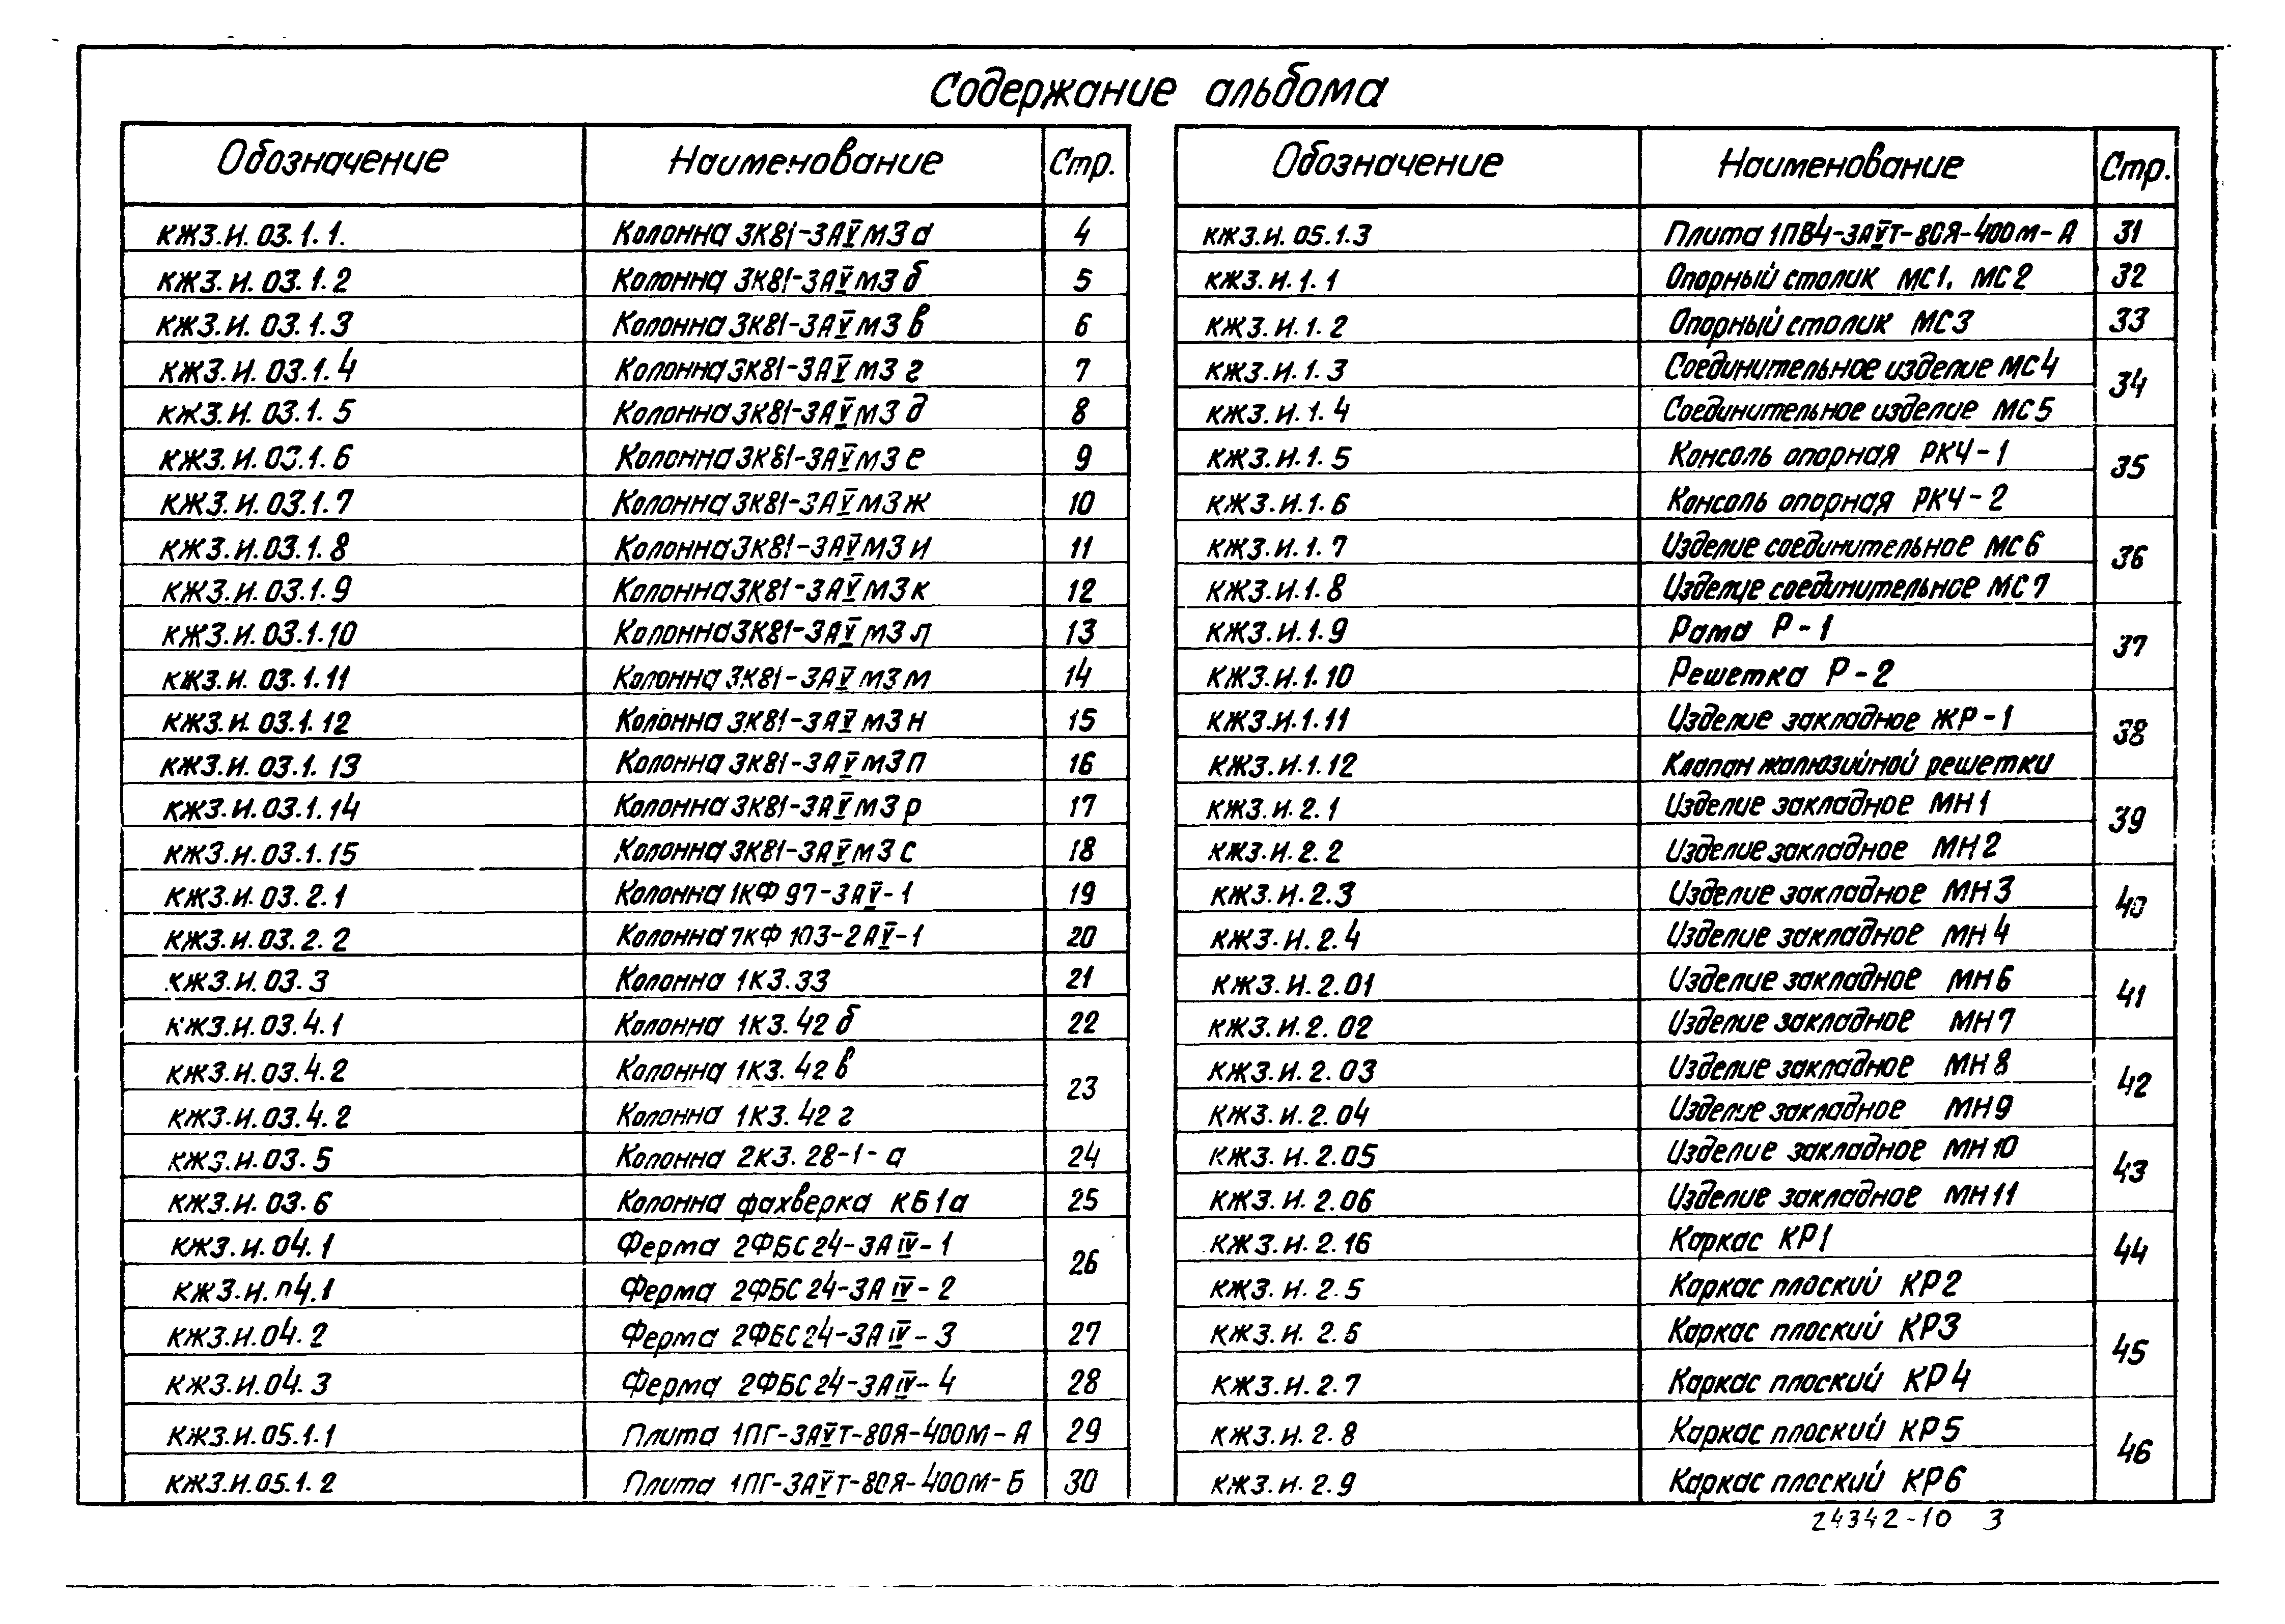 Содержание альбома
Обозначение Наименование Стр.
КЖ3.И.03.1.1. Колонна 3К81-3АV М3 а 4
КЖ3.И.03.1.2 Колонна 3К81-3АV М3 б 5
КЖ3.И.03.1.3 Колонна 3К81-3АV М3 в 6
КЖ3.И.03.1.4 Колонна 3К81-3АV М3 г 7
КЖ3.И.03.1.5 Колонна 3К81-3АV М3 д 8
КЖ3.И.03.1.6 Колонна 3К81-3АV М3 е 9
КЖ3.И.03.1.7 Колонна 3К81-3АV М3 ж 10
КЖ3.И.03.1.8 Колонна 3К81-3АV М3 и 11
КЖ3.И.03.1.9 Колонна 3К81-3АV М3 к 12
КЖ3.И.03.1.10 Колонна 3К81-3АV М3 л 13
КЖ3.И.03.1.11 Колонна 3К81-3АV М3 м 14
КЖ3.И.03.1.12 Колонна 3К81-3АV М3 н 15
КЖ3.И.03.1.13 Колонна 3К81-3АV М3 п 16
КЖ3.И.03.1.14 Колонна 3К81-3АV М3 р 17
КЖ3.И.03.1.15 Колонна 3К81-3АV М3 с 18
КЖ3.И.03.2.1 Колонна 1КФ 97-3АV-1 19
КЖ3.И.03.2.2 Колонна 7КФ 103-2АV-1 20
КЖ3.И.03.3 Колонна 1К3.33 21
КЖ3.И.03.4.1 Колонна 1К3.42 б 22
КЖ3.И.03.4.2 Колонна 1К3.42 в 23
КЖ3.И.03.4.2 Колонна 1К3.42 г
КЖ3.И.03.5 Колонна 2К3.28-1-а 24
КЖ3.И.03.6 Колонна фахверка КБ1а 25
КЖ3.И.04.1 Ферма 2ФБС24-3АIV-1 26
КЖ3.И.04.1 Ферма 2ФБС24-3АIV-2
КЖ3.И.04.2 Ферма 2ФБС24-3АIV-3 27
КЖ3.И.04.3 Ферма 2ФБС24-3АIV-4 28
КЖ3.И.05.1.1 Плита 1ПГ-3АVТ-80Я-400М-А 29
КЖ3.И.05.1.2 Плита 1ПГ-3АVТ-80Я-400М-Б 30
Обозначение Наименование Стр.
КЖ3.И.05.1.3 Плита 1ПВ4-3АVТ-80Я-400М-А 31
КЖ3.И.1.1 Опорный столик МС1, МС2 32
КЖ3.И.1.2 Опорный столик МС3 33
КЖ3.И.1.3 Соединительное изделие МС4 34
КЖ3.И.1.4 Соединительное изделие МС5
КЖ3.И.1.5 Консоль опорная РКЧ-1 35
КЖ3.И.1.6 Консоль опорная РКЧ-2
КЖ3.И.1.7 Изделие соединительное МС6 36
КЖ3.И.1.8 Изделие соединительное МС7
КЖ3.И.1.9 Рама Р-1 37
КЖ3.И.1.10 Решетка Р-2
КЖ3.И.1.11 Изделие закладное ЖР-1 38
КЖ3.И.1.12 Клапан жалюзийной решетки
КЖ3.И.2.1 Изделие закладное МН1 39
КЖ3.И.2.2 Изделие закладное МН2
КЖ3.И.2.3 Изделие закладное МН3 40
КЖ3.И.2.4 Изделие закладное МН4
КЖ3.И.2.01 Изделие закладное МН6 41
КЖ3.И.2.02 Изделие закладное МН7
КЖ3.И.2.03 Изделие закладное МН8 42
КЖ3.И.2.04 Изделие закладное МН9
КЖ3.И.2.05 Изделие закладное МН10 43
КЖ3.И.2.06 Изделие закладное МН11
КЖ3.И.2.16 Каркас КР1 44
КЖ3.И.2.5 Каркас плоский КР2
КЖ3.И.2.6 Каркас плоский КР3 45
КЖ3.И.2.7 Каркас плоский КР4
КЖ3.И.2.8 Каркас плоский КР5 46
КЖ3.И.2.9 Каркас плоский КР6
24342-10 3